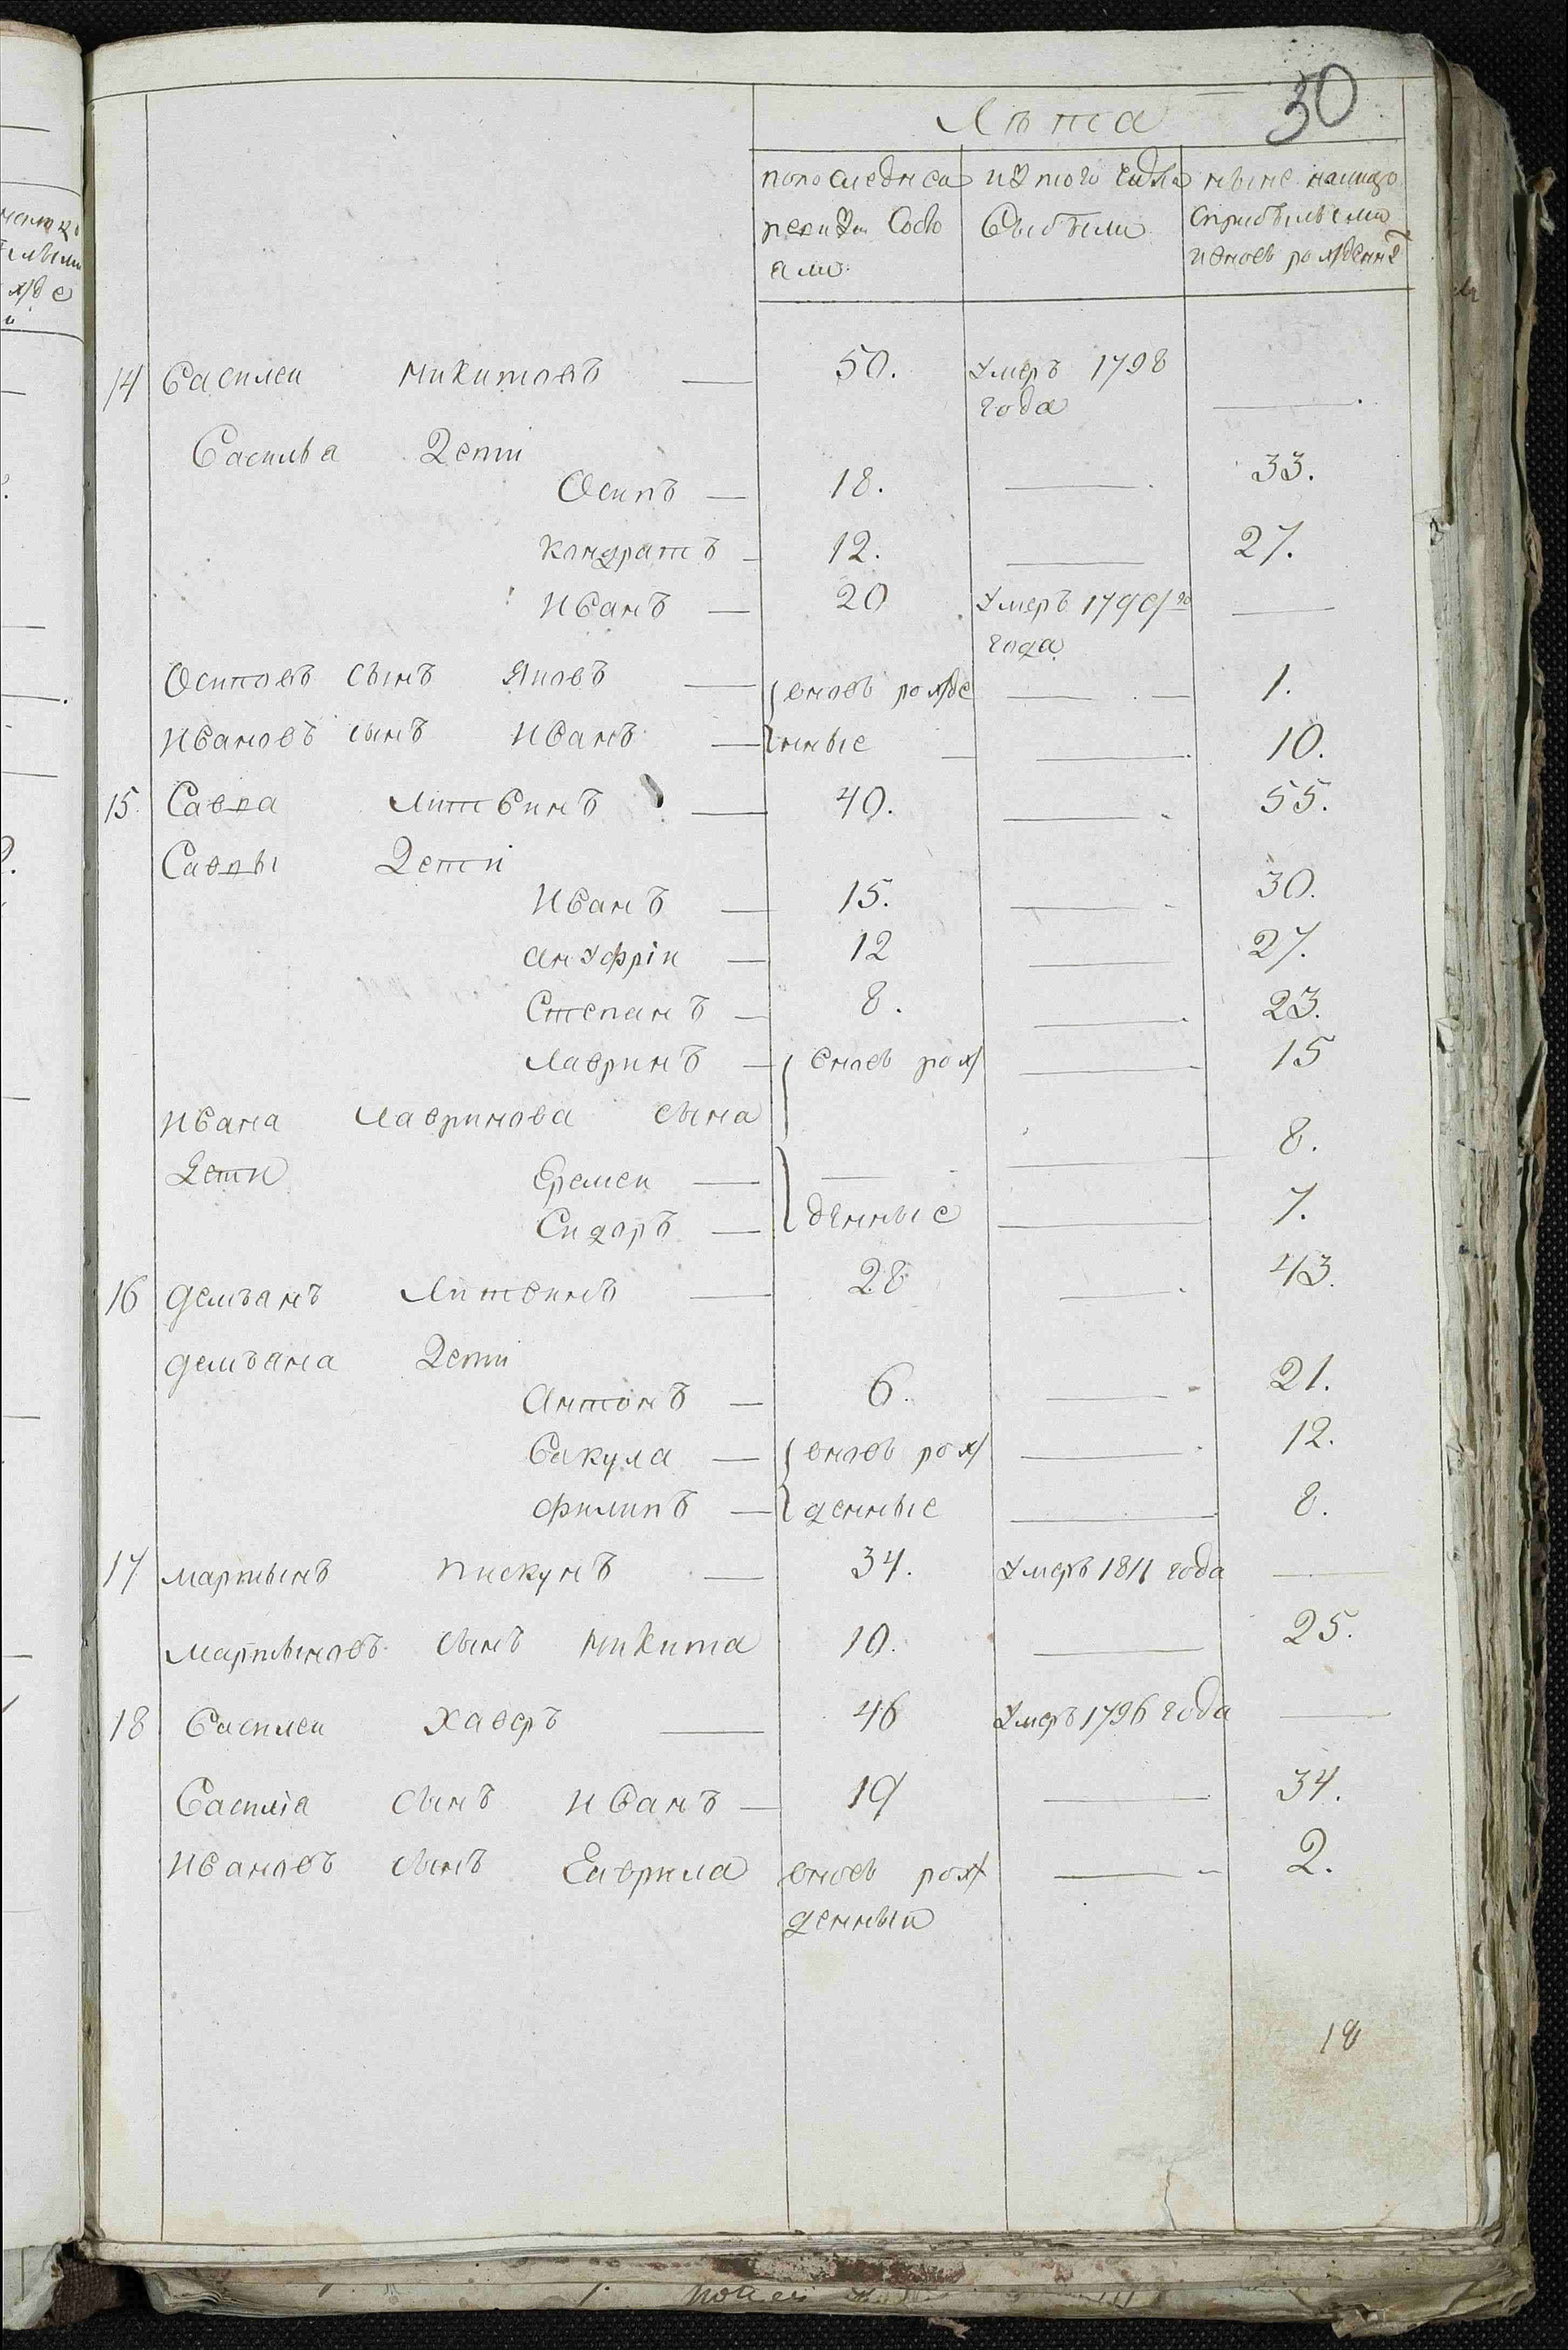 30
Лѣта
попоследнеи изтого числа ныне налицо
ревизiи состо выбыли сприбылыми
яли ивновь рожденнѣ
14 Василеи Микитовъ — 50. умеръ 1798
года — .
Василья Дети
Осипъ — 18. — . 33.
Кондратъ — 12. — 27.
Иванъ — 20 умеръ 179 го —
года
Осиповъ сынъ Яковъ — вновь рожде — . — 1.
Ивановъ сынъ Иванъ — нные — — . 10.
15. Савка Литвинъ — 40. — . 55.
Савки Дети
Иванъ — 15. — . 30.
Ануфрiи — 12 — 27.
Степанъ — 8. — . 23.
Лавринъ — вновь рож — 15
Ивана Лавринова сына
8.
Дети Еремеи — — —
Сидоръ — денные — 7.
16 Демьянъ Литвинъ — 28 — . 43.
Демьяна Дети
Антонъ — 6. — . 21.
Вакула — вновь рож — . 12.
Филипъ — денные — 8.
17 Мартынъ Пискунъ — 34. умеръ 1811 года —
Мартыновъ сынъ Микита 10. — 25.
18 Василеи Хаверъ — 46 умеръ 1796 года —
Василiя сынъ Иванъ — 19 — 34.
Ивановъ сынъ Гаврила вновь рож — 2.
денный
18